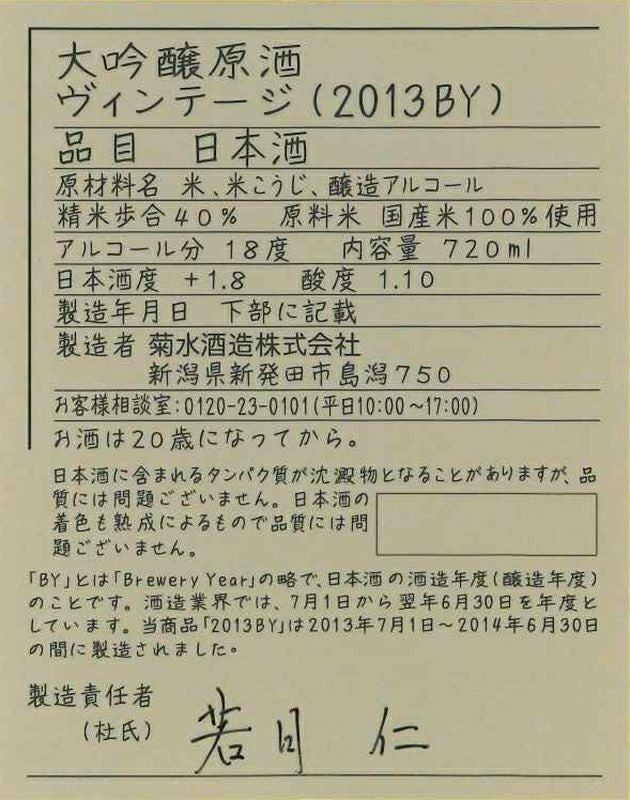 大吟醸原酒
ヴィンテージ(2013BY)
品目 日本酒
原材料名 米、米こうじ、醸造アルコール
精米歩合40% 原料米 国産米100%使用
アルコール分 18度 内容量 720ml
日本酒度 +1.8 酸度 1.10
製造年月日 下部に記載
製造者 菊水酒造株式会社
新潟県新発田市島潟750
お客様相談室:0120-23-0101(平日10:00~17:00)
お酒は20歳になってから。
日本酒に含まれるタンパク質が沈澱物となることがありますが、品
質には問題ございません。日本酒の
着色も熟成によるもので品質には問
題ございません。
「BY」とは「Brewery Year」の略で、日本酒の酒造年度(醸造年度)
のことです。酒造業界では、7月1日から翌年6月30日を年度と
しています。当商品「2013BY」は2013年7月1日~2014年6月30日
の間に製造されました。
製造責任者
(杜氏) 若月 仁